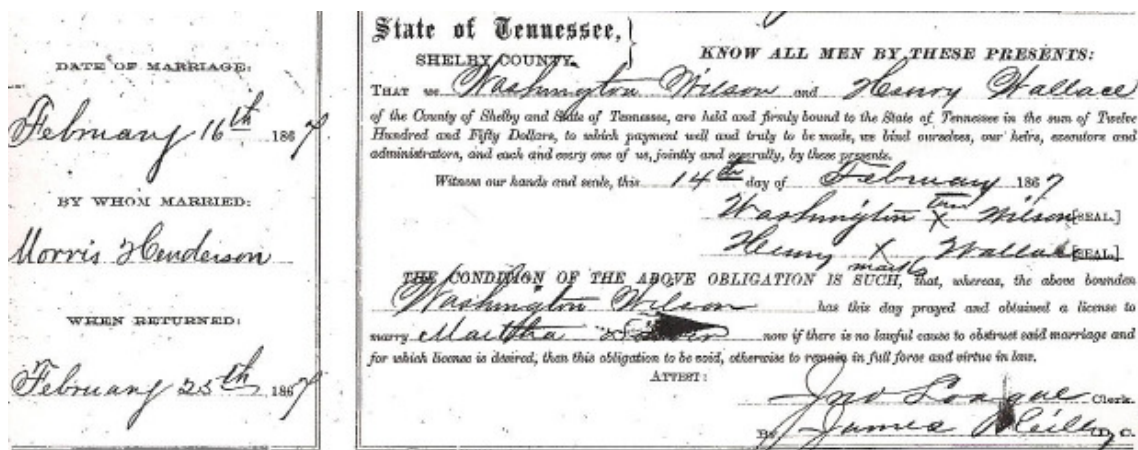 DATE OF MARRIAGE:
February 16th 1867
BY WHOM MARRIED:
Morris Henderson
WHEN RETURNED:
February 25th 1867
State of Tennessee,
SHELBY COUNTY.
KNOW ALL MEN BY THESE PRESENTS:
THAT we Washington Wilson and Henry Wallace
of the County of Shelby and State of Tennessee, are held and firmly bound to the State of Tennessee in the sum of Twelve
Hundred and Fifty Dollars, to which payment well and truly to be made, we bind ourselves, our heirs, executors and
administrators, and each and every one of us, jointly and severally, by these presents.
Witness our hands and seals, this 14th day of February 1867
Washington X Wilson [SEAL.]
Henry X Wallace [SEAL.]
marks
THE CONDITION OF THE ABOVE OBLIGATION IS SUCH, that, whereas, the above bounden
Washington Wilson has this day prayed and obtained a license to
marry Martha now if there is no lawful cause to obstruct said marriage and
for which license is desired, then this obligation to be void, otherwise to remain in full force and virtue in law.
ATTEST:
Jno Loague Clerk.
By James Reilly D. C.